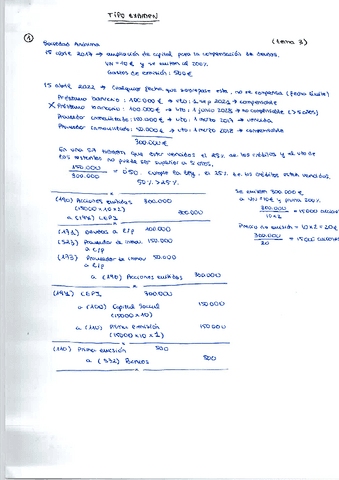 TIPO EXAMEN
①
Sociedad Anónima
(tema 3)
15 abril 2017 → ampliación de capital para la compensación de deudas.
VN = 10 € y se emiten al 200%
Gastos de emisión: 500 €
15 abril 2022 → Cualquier fecha que sobrepase esta, no se compensa (fecha límite)
Préstamo bancario: 100.000 € → vto: 1 sep 2021 → compensable
X Préstamo bancario: 100.000 € → vto: 1 junio 2023 → no compensable (>5 años)
Proveedor inmovilizado: 150.000 € → vto: 1 2017 → vencida
Proveedor inmovilizado: 50.000 € → vto: 1 2018 → compensable
300.000 €
En una SA tendrán que estar vencidos el 25% de los créditos y el vto de
los restantes no puede ser superior a 5 años.
150.000 / 300.000 = 0'50. Cumple la ley, el 25% de los créditos están vencidos.
50% > 25%
Se emiten 300.000 €
a VN 10 € y prima 200%
300.000 / 10×2 = 15000 acciones
Precio de emisión = 10×2 = 20 €
300.000 / 20 = 15000 acciones
(190) Acciones emitidas 300.000
(15000 × 10 × 2)
a (194) CEPI 300.000
x
(171) Deudas a L/p 100.000
(523) Proveedor de inmov 150.000
a c/p
(173) Proveedor de inmov 50.000
a L/p
a (190) Acciones emitidas 300.000
x
(194) CEPI 300.000
a (100) Capital Social 150.000
(15000 × 10)
a (110) Prima emisión 150.000
(15000 × 10 × 1)
x
(110) Prima emisión 500
a (572) Bancos 500
x